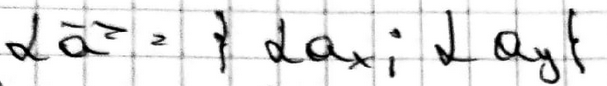 α a⃗ = { α aₓ ; α a_y }